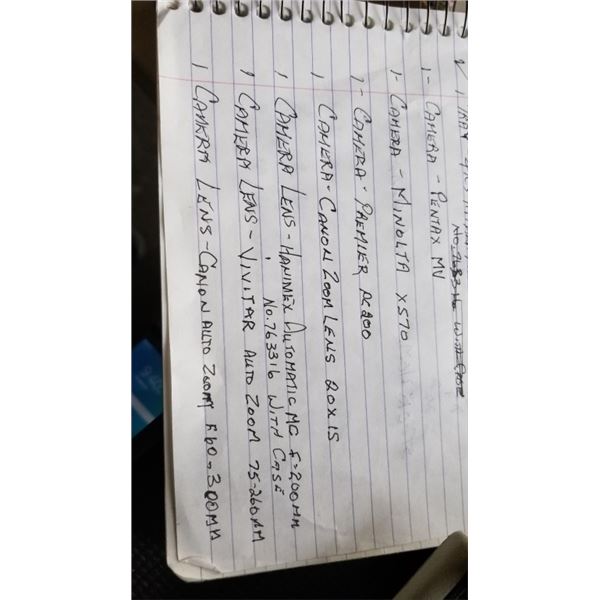 1 TRAY
No. 7683 WITH CASE
1- CAMERA - PENTAX MV
1- CAMERA - MINOLTA X570
1- CAMERA - PREMIER PC200
1 CAMERA - CANON ZOOM LENS 20X15
1 CAMERA LENS - HANIMEX AUTOMATIC MC F=200MM
No. 763316 WITH CASE
1 CAMERA LENS - VIVITAR AUTO ZOOM 75-260MM
1 CAMERA LENS - CANON AUTO ZOOM F.60-300MM